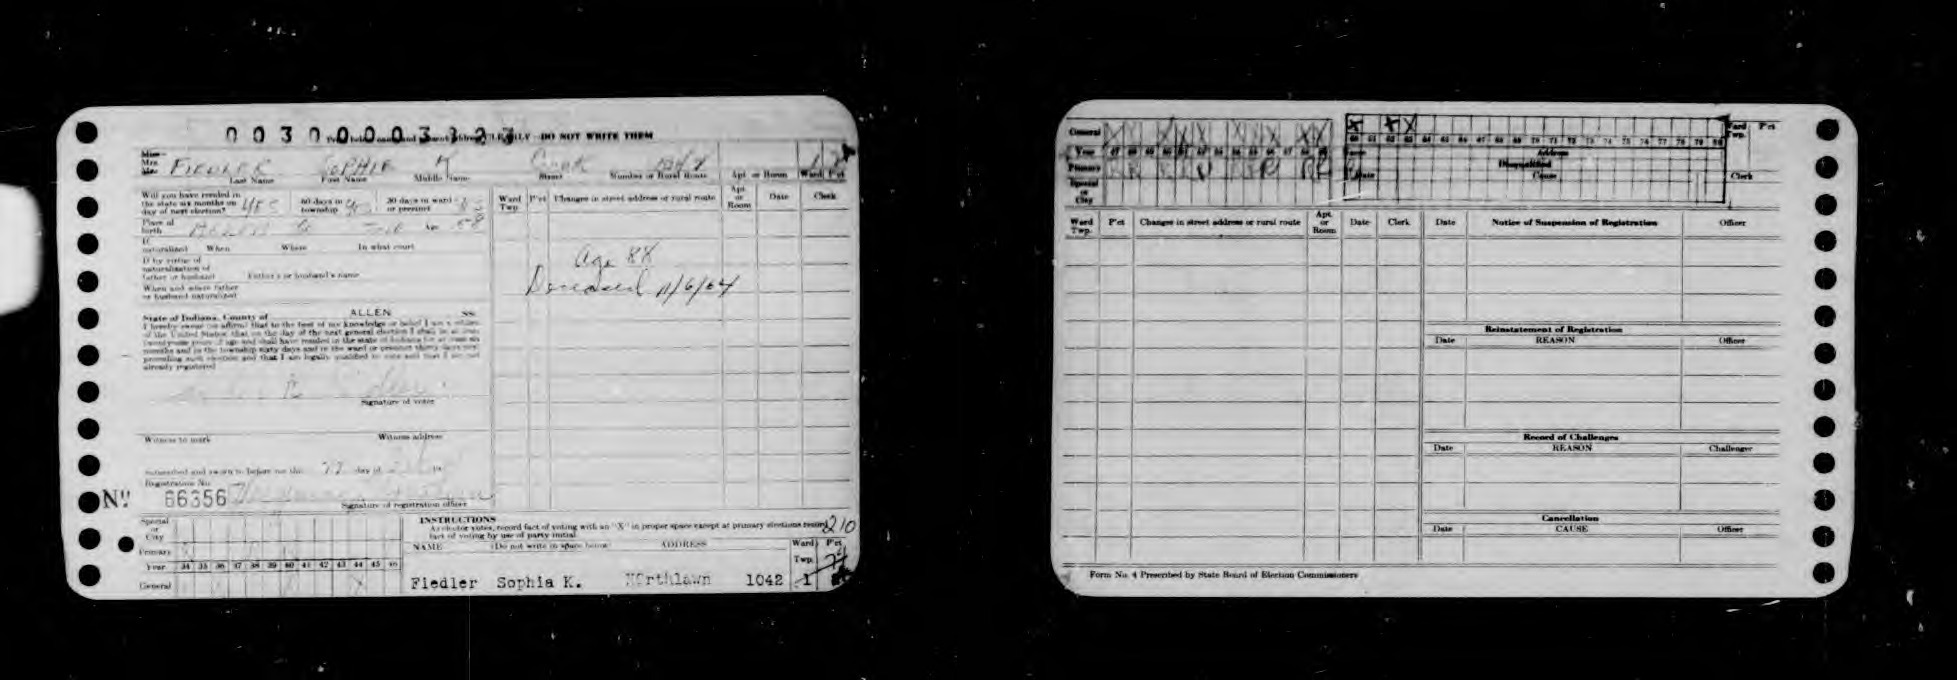 00300003323
DO NOT WRITE THEM
Miss
Mrs.
Mr.
FIEDLER SOPHIE K Cook 1042
Last Name First Name Middle Name Street Number or Rural Route Apt. or Room Ward P'ct
Will you have resided in
the state six months on
day of next election? YES 60 days in
township 30 days in ward
or precinct
Place of
birth Age 58
If
naturalized When Where In what court
If by virtue of
naturalization of
father or husband Father's or husband's name
When and where father
or husband naturalized
State of Indiana, County of ALLEN SS:
I hereby swear (or affirm) that to the best of my knowledge or belief I am a citizen
of the United States; that on the day of the next general election I shall be at least
twenty-one years of age and shall have resided in the state of Indiana for at least six
months and in the township sixty days and in the ward or precinct thirty days next
preceding such election and that I am legally qualified to vote and that I am not
already registered
Signature of voter
Witness to mark Witness address
Subscribed and sworn to before me this 22 day of
Registration No.
No. 66356
Signature of registration officer
Ward
Twp. P'ct Changes in street address or rural route Apt.
or
Room Date Clerk
Age 88
Deceased 11/6/64
Special
or
City
Primary
Year 34 35 36 37 38 39 40 41 42 43 44 45 46
General X
INSTRUCTIONS
As elector votes, record fact of voting with an "X" in proper space except at primary elections record
fact of voting by use of party initial.
210
NAME (Do not write in space below) ADDRESS Ward
Twp. P'ct
Fiedler Sophia K. Northlawn 1042 1
General
Year 47 48 49 50 51 52 53 54 55 56 57 58 59
Primary
Special
or
City
60 61 62 63 64 65 66 67 68 69 70 71 72 73 74 75 76 77 78 79 80
Ward P'ct
Address
Disqualified
Date Cause Clerk
Ward
Twp. P'ct Changes in street address or rural route Apt.
or
Room Date Clerk
Date Notice of Suspension of Registration Officer
Reinstatement of Registration
Date REASON Officer
Record of Challenges
Date REASON Challenger
Cancellation
Date CAUSE Officer
Form No. 4 Prescribed by State Board of Election Commissioners